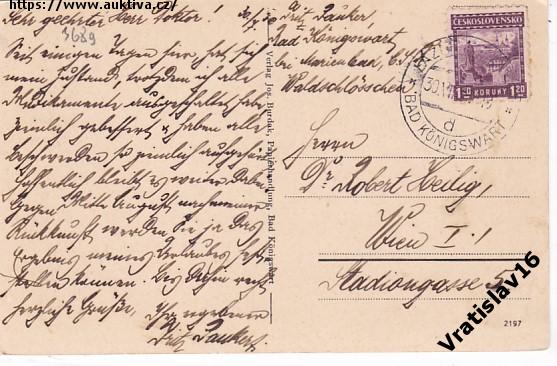 https://www.auktiva.cz/
Sehr geehrter Herr Doktor!
3689
Seit einigen Tagen hat sich
mein Zustand, trotzdem ich alle
Medikamente ausgeschaltet habe
ziemlich gebessert & haben alle
Beschwerden so ziemlich aufgehört
Hoffentlich bleibt es weiter dabei
Gegen Mitte August nach meiner
Rückkunft werden Sie ja das
Ergebnis meines Urlaubes
können. Bis dahin recht
herzliche Grüße,
Ihr ergebener
Fritz Dauker.
Verlag Jos. Burdak, Papierhandlung, Bad Königswart
Fritz Dauker,
Bad Königswart
bei Marienbad, ČSR
Waldschlösschen
ČESKOSLOVENSKO
1.20 KORUNY 1.20
30.VII
d
BAD KÖNIGSWART
Herrn
Dr Robert Heilig,
Wien I.
Stadiongasse 5
2197
Vratislav16